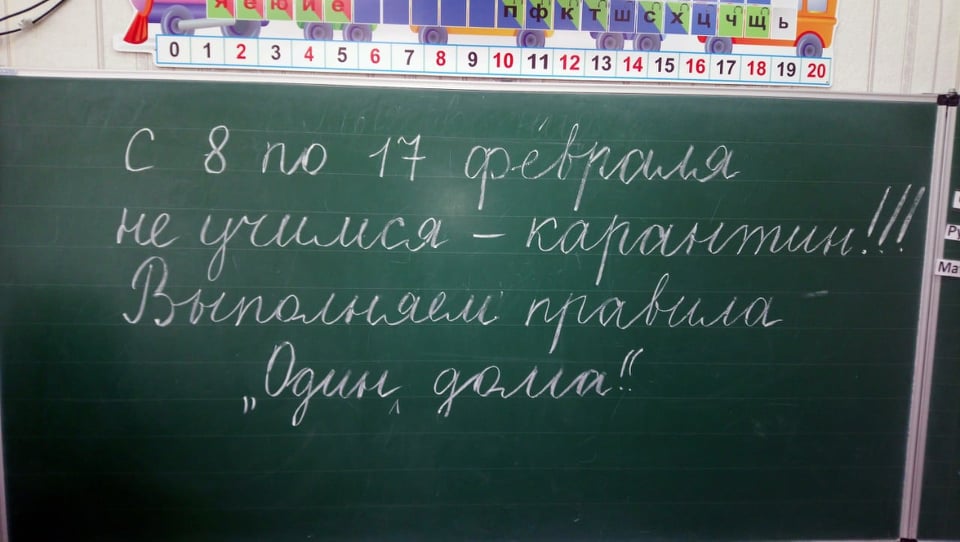 Я Е Ю И Ё П Ф К Т Ш С Х Ц Ч Щ Ь
0 1 2 3 4 5 6 7 8 9 10 11 12 13 14 15 16 17 18 19 20
С 8 по 17 февраля
не учимся – карантин!!!
Выполняем правила
„Один дома“!
Ру
Ма